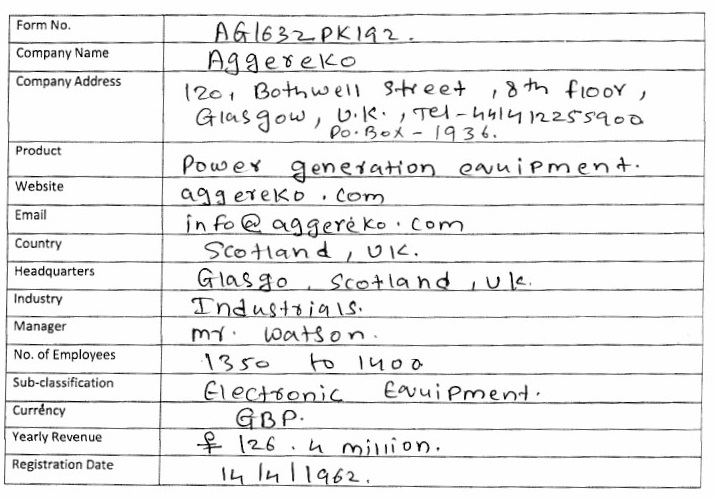 Form No. AG1632PK192.
Company Name Aggereko
Company Address 120, Bothwell Street, 8th floor,
Glasgow, U.K., Tel-441412255900
Po. Box - 1936.
Product Power generation equipment.
Website aggereko.com
Email info@aggereko.com
Country Scotland, UK.
Headquarters Glasgo, Scotland, Uk.
Industry Industrials.
Manager mr. Watson.
No. of Employees 1350 to 1400
Sub-classification Electronic Equipment.
Currency GBP.
Yearly Revenue £ 126.4 million.
Registration Date 14/4/1962.